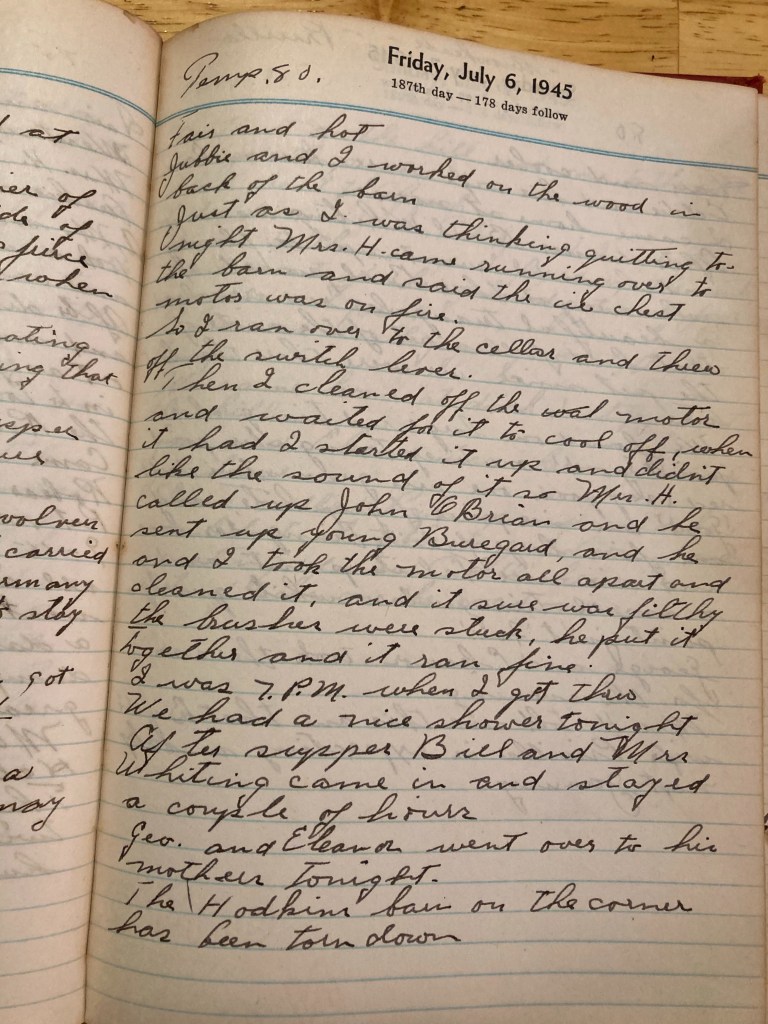 at
ier of
de of
fierce
when
ating
ing that
supper
volver
carried
rmany
stay
got
a
may
Temp. 80.
Friday, July 6, 1945
187th day — 178 days follow
Fair and hot
Jubbie and I worked on the wood in
back of the barn
Just as I was thinking quitting to-
night Mrs. H. came running over to
the barn and said the ice chest
motor was on fire.
So I ran over to the cellar and threw
off the switch lever.
Then I cleaned off the motor
and waited for it to cool off, when
it had I started it up and didn't
like the sound of it so Mrs. H.
called up John O'Brian and he
sent up young Buregard, and he
and I took the motor all apart and
cleaned it, and it sure was filthy
the brushes were stuck, he put it
together and it ran fine.
I was 7. P.M. when I got thru
We had a nice shower tonight
After supper Bill and Mrs
Whiting came in and stayed
a couple of hours
Geo. and Eleanor went over to his
mothers tonight.
The Hodkins barn on the corner
has been torn down